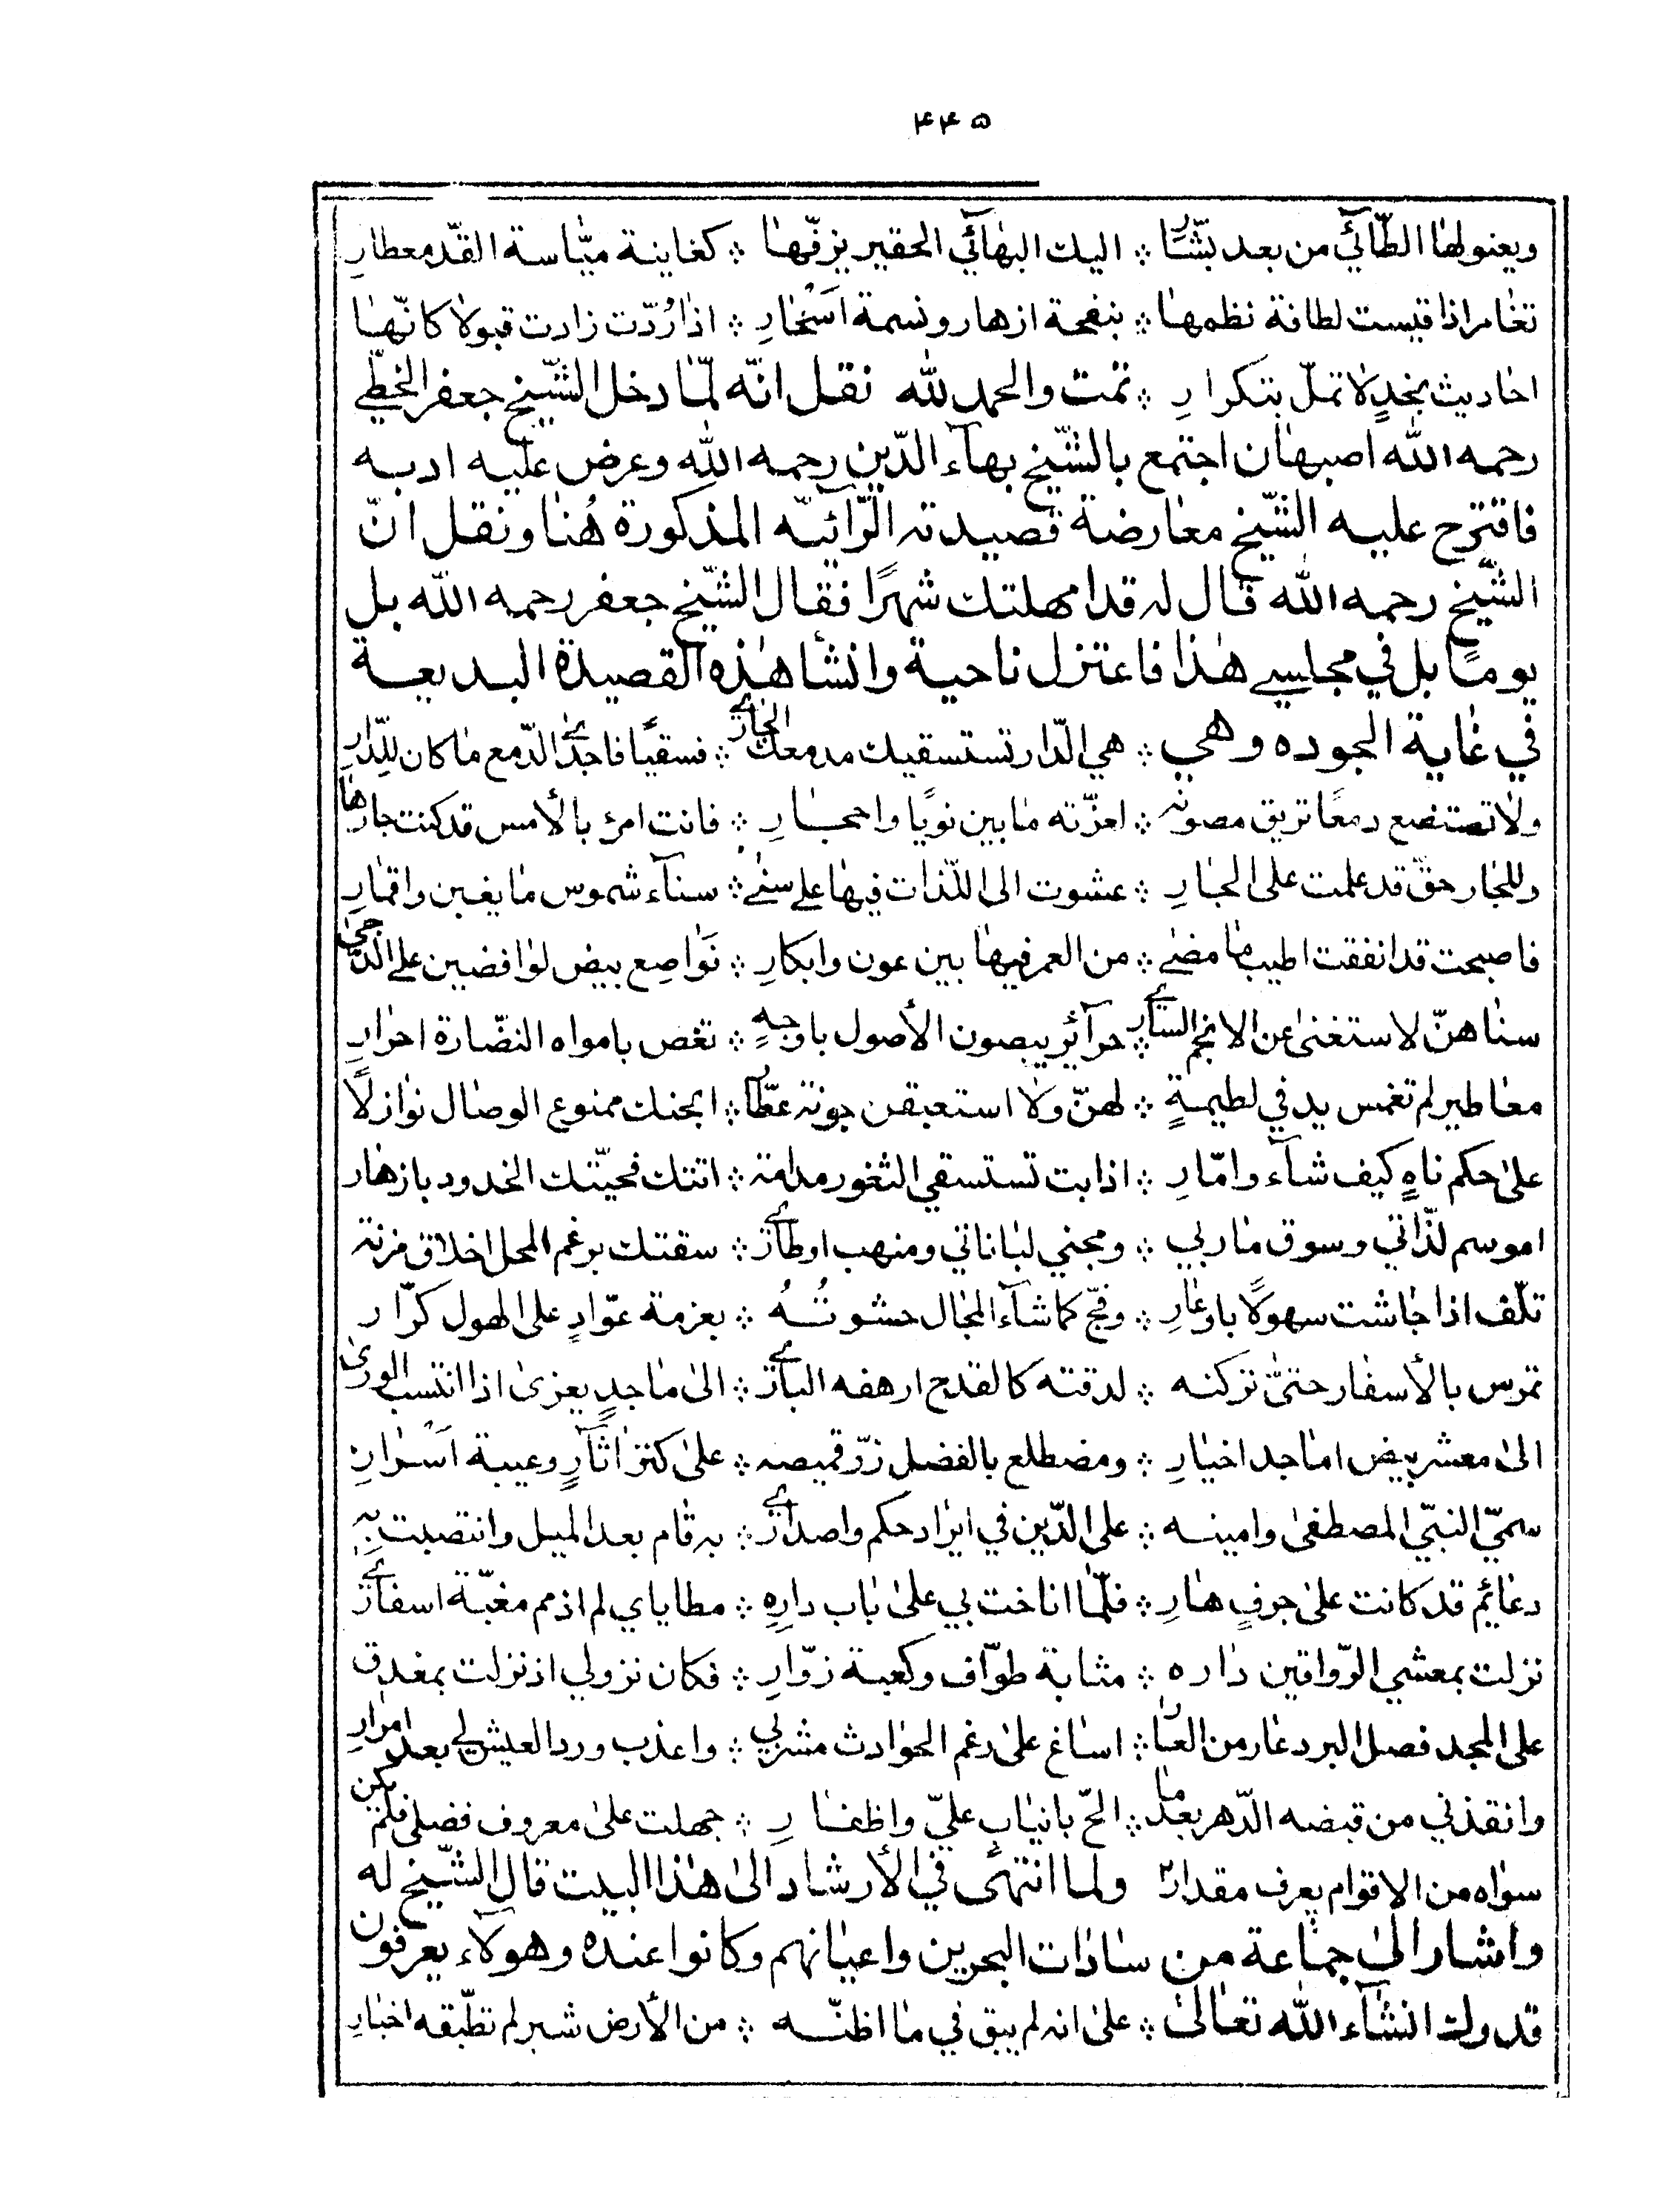 ٤٤٥
ويعنولها الطّائيّ من بعد بشّار ۞ اليك البهائيّ الحقير يزفّها ۞ كغانية ميّاسة القدّ معطارِ
تغار اذا قيست لطافة نظمها ۞ بنفحة ازهار ونسمة اسحارِ ۞ اذا رُدّت زادت قبولا كانّها
احاديث نجدٍ لا تملّ بتكرارِ ۞ تمت والحمد لله نقل انّه لمّا دخل الشّيخ جعفر الخطّي
رحمه الله اصبهان اجتمع بالشّيخ بهآء الدّين رحمه الله وعرض عليه ادبه
فاقترح عليه الشّيخ معارضة قصيدته الرّآئيّه المذكورة هُنا ونقل انّ
الشّيخ رحمه الله قال له قد امهلتك شهرًا فقال الشّيخ جعفر رحمه الله بل
يومًا بل في مجلسي هذا فاعتزل ناحية وانشأ هذه القصيدة البديعة
في غاية الجوده وهي ۞ هي الدّار تستسقيك مدمعك الجاري ۞ فسقيًا فاجدى الدّمع ما كان للدّارِ
ولا تستضع دمعًا تريق مصونه ۞ لعزّته ما بين نويًا واحجارِ ۞ فانت امرؤ بالأمس قد كنت جارها
وللجار حقّ قد علمت على الجارِ ۞ عشوت الى اللّذات فيها على سنى ۞ سنآء شموس ما يغبن واقمارِ
فاصبحت قد انفقت اطيب ما مضى ۞ من العمر فيها بين عون وابكارِ ۞ نواصع بيض لو افضين على الدّجى
سناهنّ لاستغنى عن الانجم السّاري ۞ حرآئر يبصون الأصول باوجهٍ ۞ تغص بامواه النضّارة احرارِ
معاطير لم تغمس يد في لطيمةٍ ۞ لهنّ ولا استعبقن جونة عطّار ۞ ابحنك ممنوع الوصال نوازلًا
على حكم ناهٍ كيف شآء وامّارِ ۞ اذا بت تستسقي الثغور مدامة ۞ اتتك فحيّتك الخدود بازهار
اموسم لذّاتي وسوق ماربي ۞ ومجني لباناتي ومنهب اوطاري ۞ سقتك برغم المحل اخلاق مزنة
تلّف اذا جاشت سهولًا باوعارِ ۞ وفجّ كما شآء المجال حشوتُهُ ۞ بعزمة عوّادٍ على الهول كرّار
تمرس بالأسفار حتّى تركنه ۞ لدقته كالقدح ارهفه الباري ۞ الى ماجدٍ يعزى اذا انتسب الورى
الى معشر بيض اماجد اخيارِ ۞ ومضطلع بالفضل زرّ قميصه ۞ على كنز اثآرٍ وعيبة اسرارِ
سميّ النبيّ المصطفى وامينه ۞ على الدّين في ايراد حكم واصداري ۞ به قام بعد الميل وانتصبت به
دعائم قد كانت على جرفٍ هارِ ۞ فلمّا اناخت بي على باب دارهِ ۞ مطاياي لم اذمم مغبّة اسفاري
نزلت بمعشي الرّواقين داره ۞ مثابة طوّاف وكعبة زوّارِ ۞ فكان نزولي اذ نزلت بمغدق
على المجد فصل البرد عار من العار ۞ اساغ على رغم الحوادث مشربي ۞ واعذب ورد العيش لي بعد امرارِ
وانقذني من قبضه الدّهر بعد ما ۞ الحّ بانيابٍ عليّ واظفارِ ۞ جهلت على معروف فضلي فلم يكن
سواه من الاقوام يعرف مقداري ولما انتهى في الأرشاد الى هذا البيت قال الشّيخ له
واشار الى جماعة من سادات البحرين واعيانهم وكانوا عنده وهولآء يعرفون
قدرك انشآء الله تعالى ۞ على انه لم يبق في ما اظنّه ۞ من الأرض شبر لم تطبّقه اخبارِ